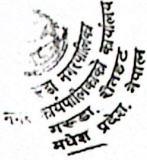 नगरपालिका
कार्यपालिकाको कार्यालय
गरूडा, रौतहट
मधेश प्रदेश, नेपाल